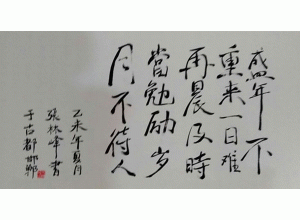 盛年不
重来一日难
再晨及時
當勉励岁
月不待人
乙未年夏月
張林峰書
于古都邯鄲